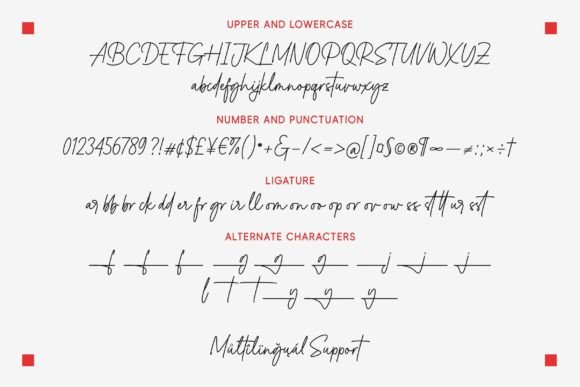 UPPER AND LOWERCASE
ABCDEFGHIJKLMNOPQRSTUVWXYZ
abcdefghijklmnopqrstuvwxyz
NUMBER AND PUNCTUATION
0123456789?!#¢$£¥€%()*+&-/<=>@[]¤§©®¶∞—≠:;×÷†
LIGATURE
ar bb br ck dd er fr gr ir ll om on oo op or ov ow ss st tt ur sst
ALTERNATE CHARACTERS
f f f g g g j j j
l t t y y y
Můltîlïnğuál Support